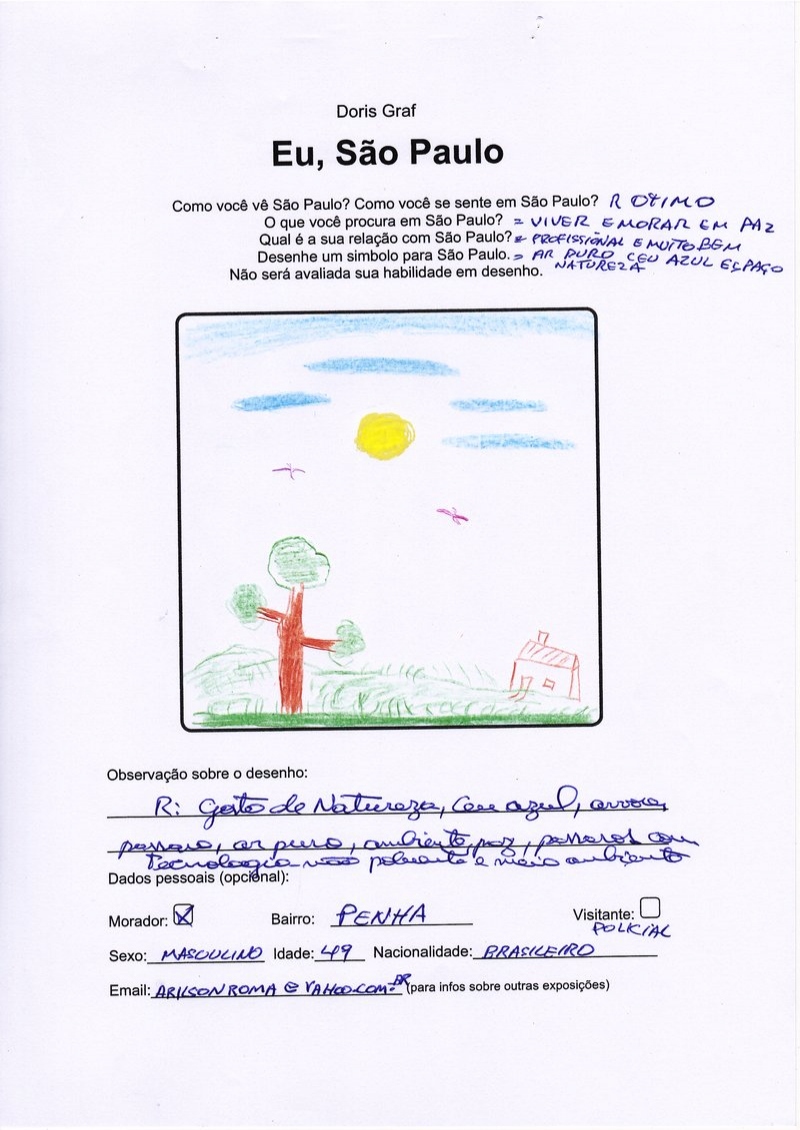 Doris Graf
Eu, São Paulo
Como você vê São Paulo? Como você se sente em São Paulo? R OTIMO
O que você procura em São Paulo? = VIVER E MORAR EM PAZ
Qual é a sua relação com São Paulo? = PROFISSIONAL E MUITO BEM
Desenhe um simbolo para São Paulo. = AR PURO CEU AZUL ESPAÇO
Não será avaliada sua habilidade em desenho. NATUREZA
Observação sobre o desenho:
R: Gosto de Natureza, Ceu azul,
passaro, ar puro, ambiente, paz, passaros com
Tecnologia não poluente e meio ambiente
Dados pessoais (opcional):
Morador: X Bairro: PENHA Visitante:
POLICIAL
Sexo: MASCULINO Idade: 49 Nacionalidade: BRASILEIRO
Email: ARILSONROMA@YAHOO.COM.BR (para infos sobre outras exposições)